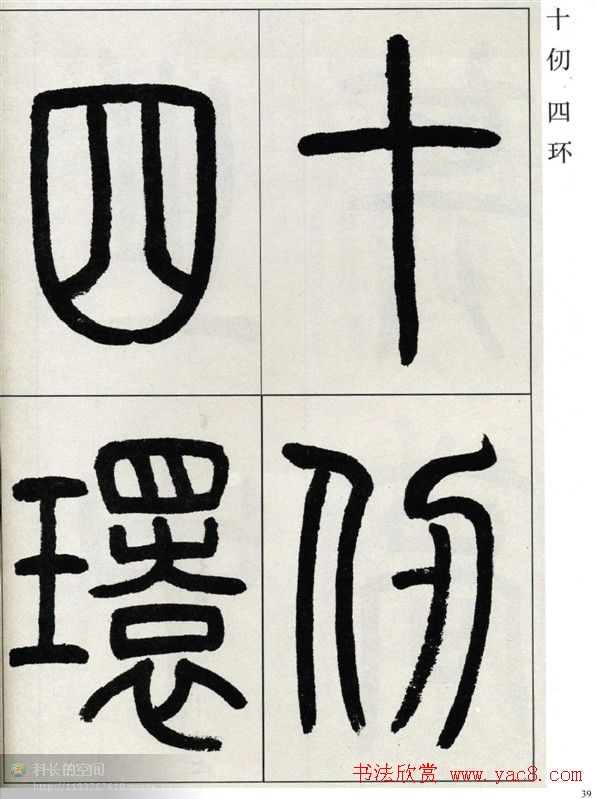 十仞 四环
十仞
四環
科长的空间
http://1193767618.qzone.qq.com
书法欣赏 www.yac8.com
39